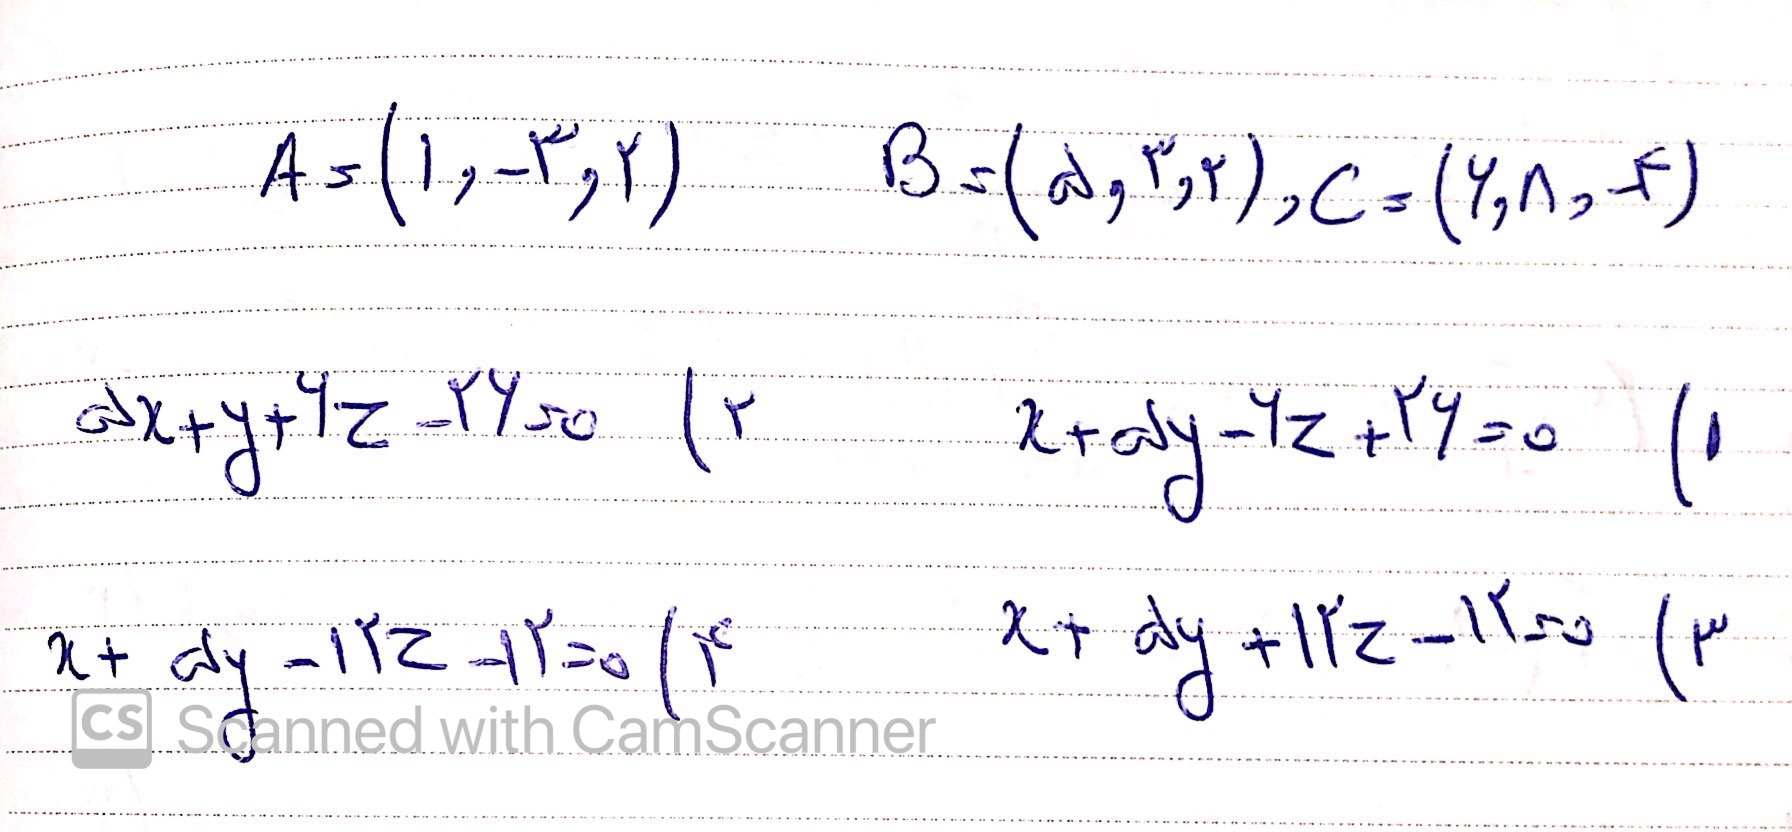 A = (۱, -۳, ۲) B = (۵, ۳, ۲), C = (۶, ۸, -۴)
x + ۵y - ۶z + ۲۶ = 0 (۱
۵x + y + ۶z - ۲۶ = 0 (۲
x + ۵y + ۱۲z - ۱۲ = 0 (۳
x + ۵y - ۱۲z - ۱۲ = 0 (۴
CS Scanned with CamScanner